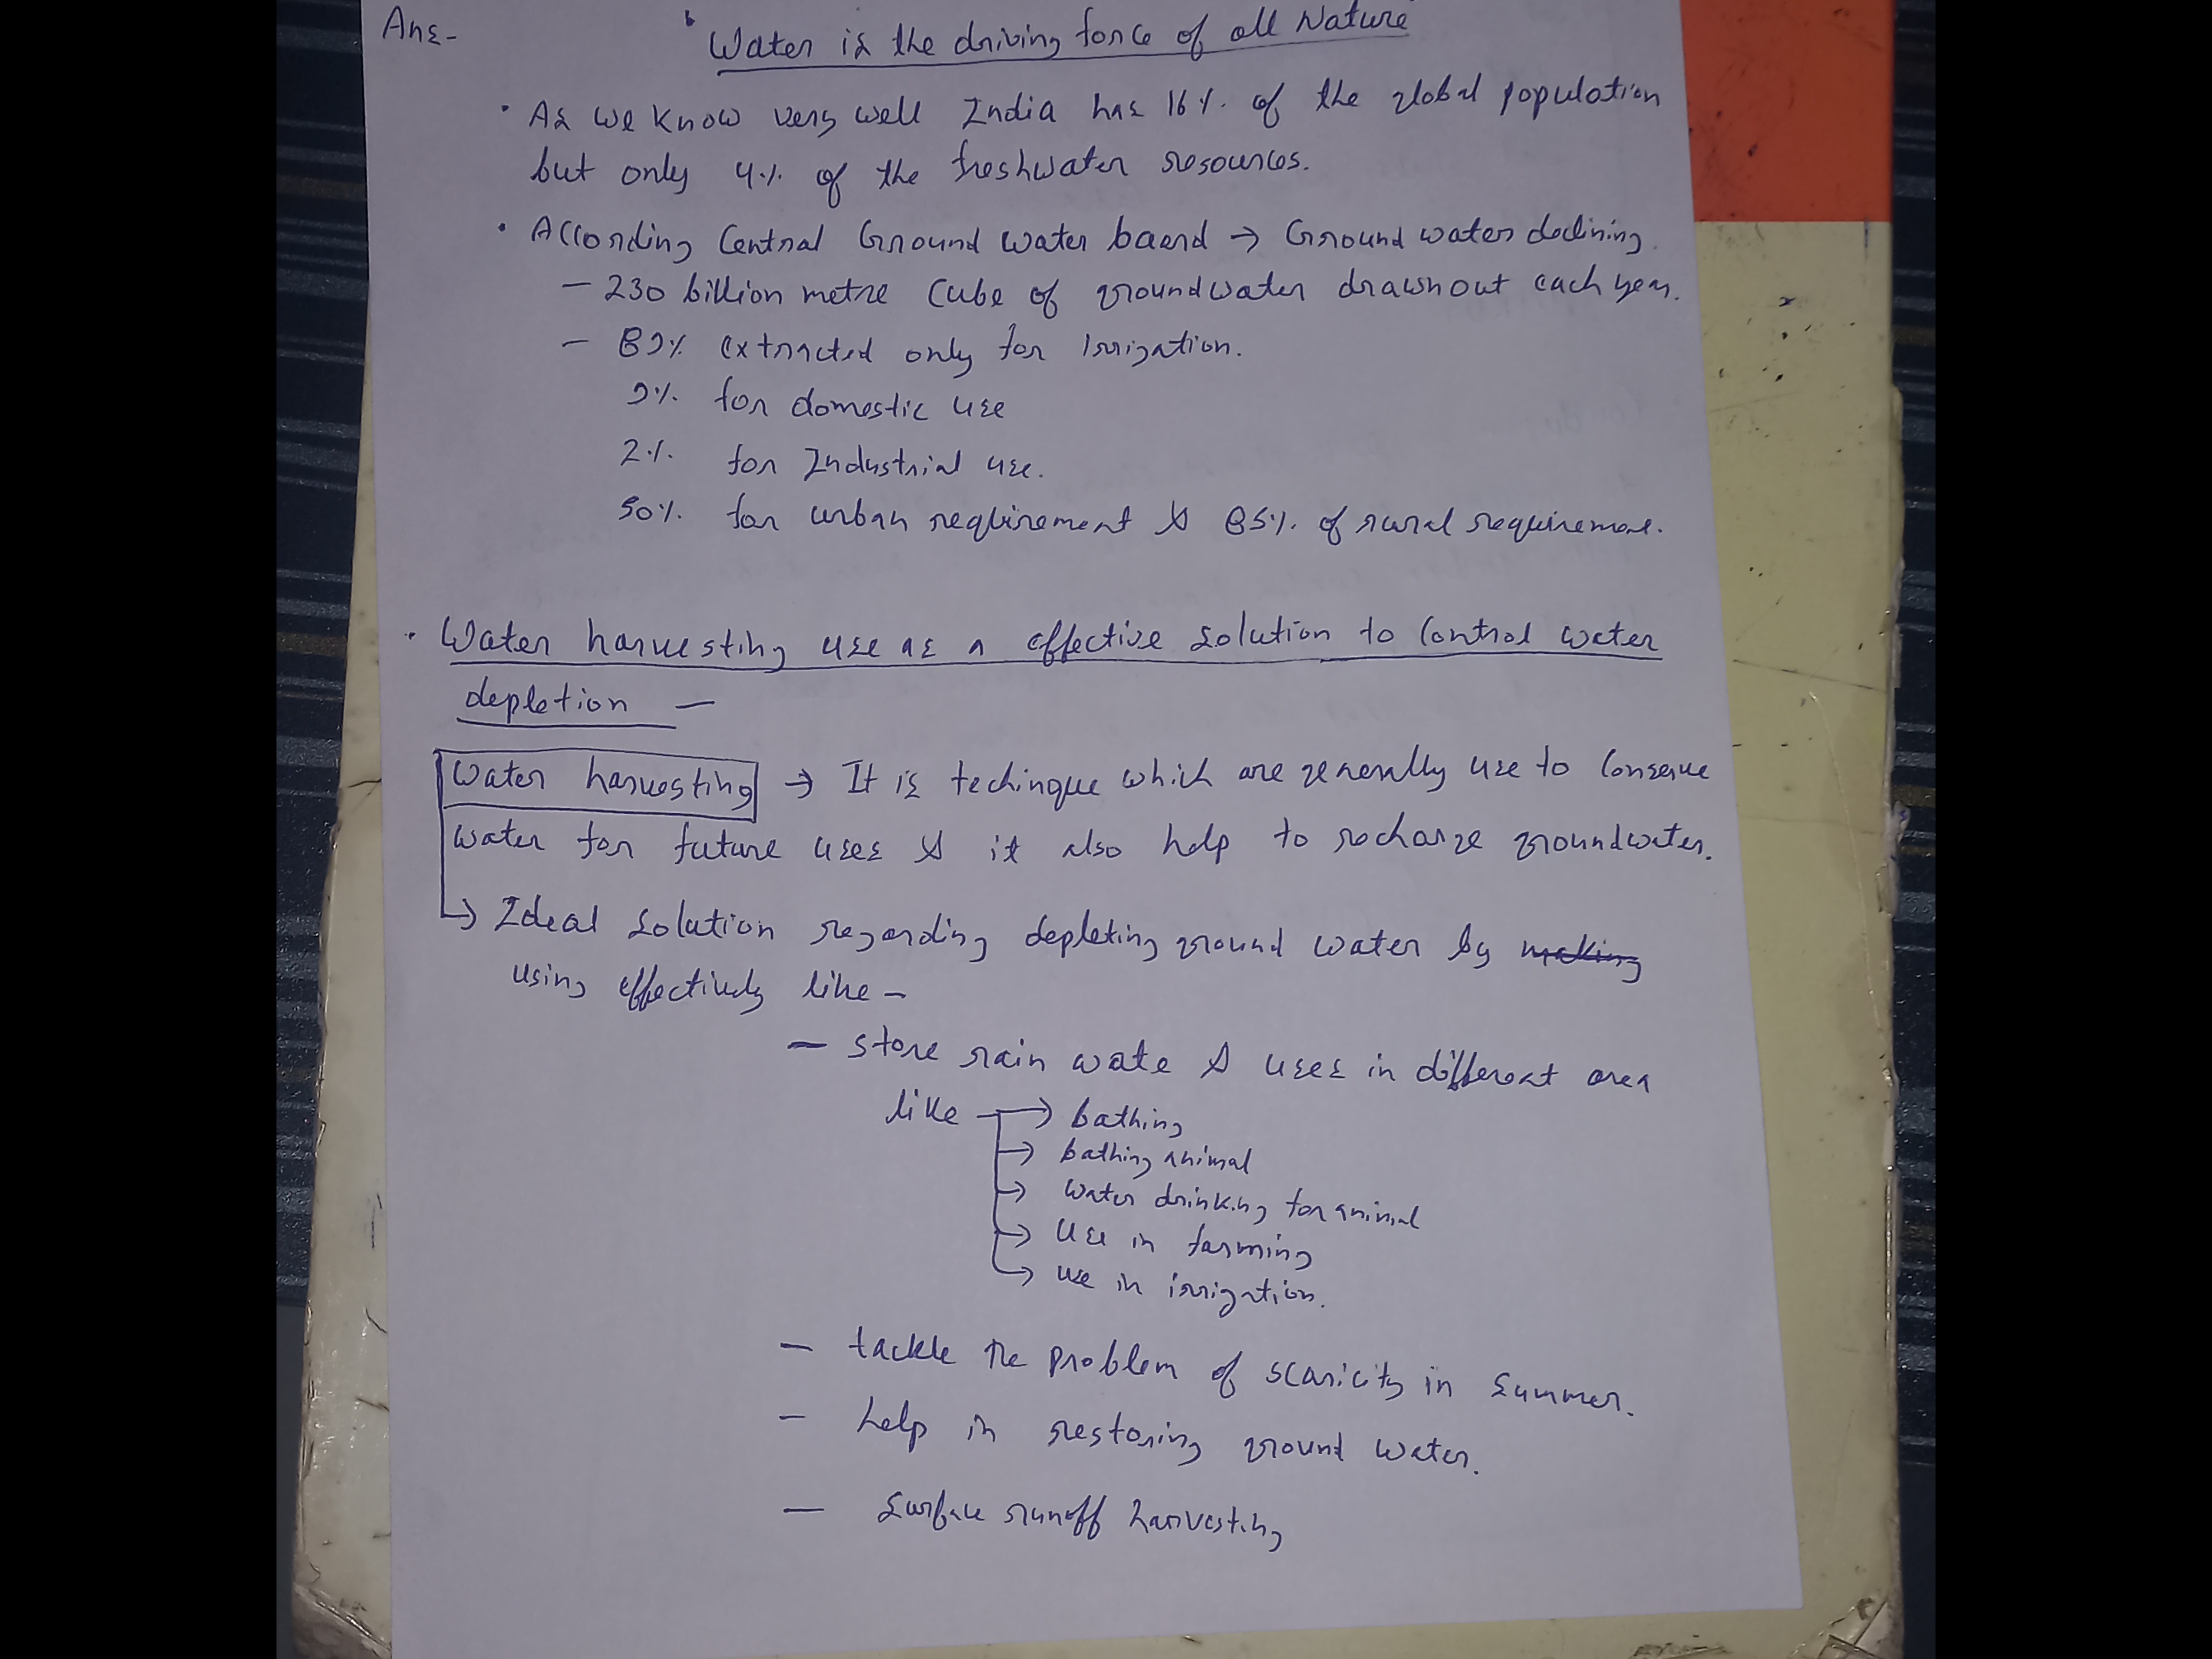 Ans-
' Water is the driving force of all Nature
• As we know very well India has 16% of the global population
but only 4% of the freshwater resources.
• According Central Ground water baord → Ground water declining.
— 230 billion metre Cube of groundwater drawnout each year.
— 89% extracted only for Irrigation.
9% for domestic use
2% for Industrial use.
50% for urban reqbirement & 85% of rural requirement.
• Water harvesting use as a effective solution to Control water
depletion —
Water harvesting → It is techinque which are generally use to Conserve
water for future uses & it also help to recharge groundwater.
↳ Ideal Solution regarding depleting ground water by making
using effectively like —
— store rain wate & uses in different area
like → bathing
→ bathing animal
→ water drinking for animal
→ Use in farming
→ use in irrigation.
— tackle the problem of scaricity in Summer.
— help in restoring ground water.
— Surface runoff harvesting